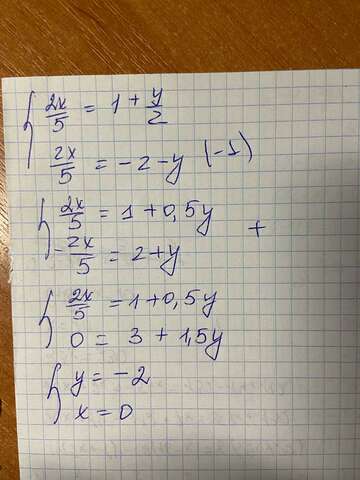 2x/5 = 1 + y/2
2x/5 = -2 - y (-1)
2x/5 = 1 + 0,5y
-2x/5 = 2 + y
+
2x/5 = 1 + 0,5y
0 = 3 + 1,5y
y = -2
x = 0